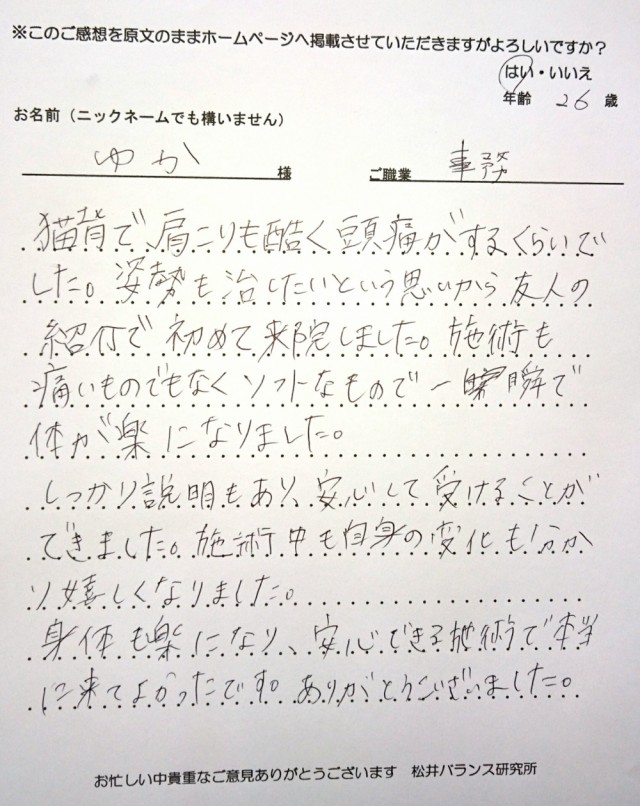 ※このご感想を原文のままホームページへ掲載させていただきますがよろしいですか？
はい・いいえ
年齢 26 歳
お名前（ニックネームでも構いません）
ゆか 様 ご職業 事務
猫背で、肩こりも酷く頭痛がするくらいで
した。姿勢も治したいという思いから友人の
紹介で初めて来院しました。施術も
痛いものでもなくソフトなもので一瞬で
体が楽になりました。
しっかり説明もあり、安心して受けることが
できました。施術中も自身の変化も分か
り嬉しくなりました。
身体も楽になり、安心できる施術で本当
に来てよかったです。ありがとうございました。
お忙しい中貴重なご意見ありがとうございます 松井バランス研究所